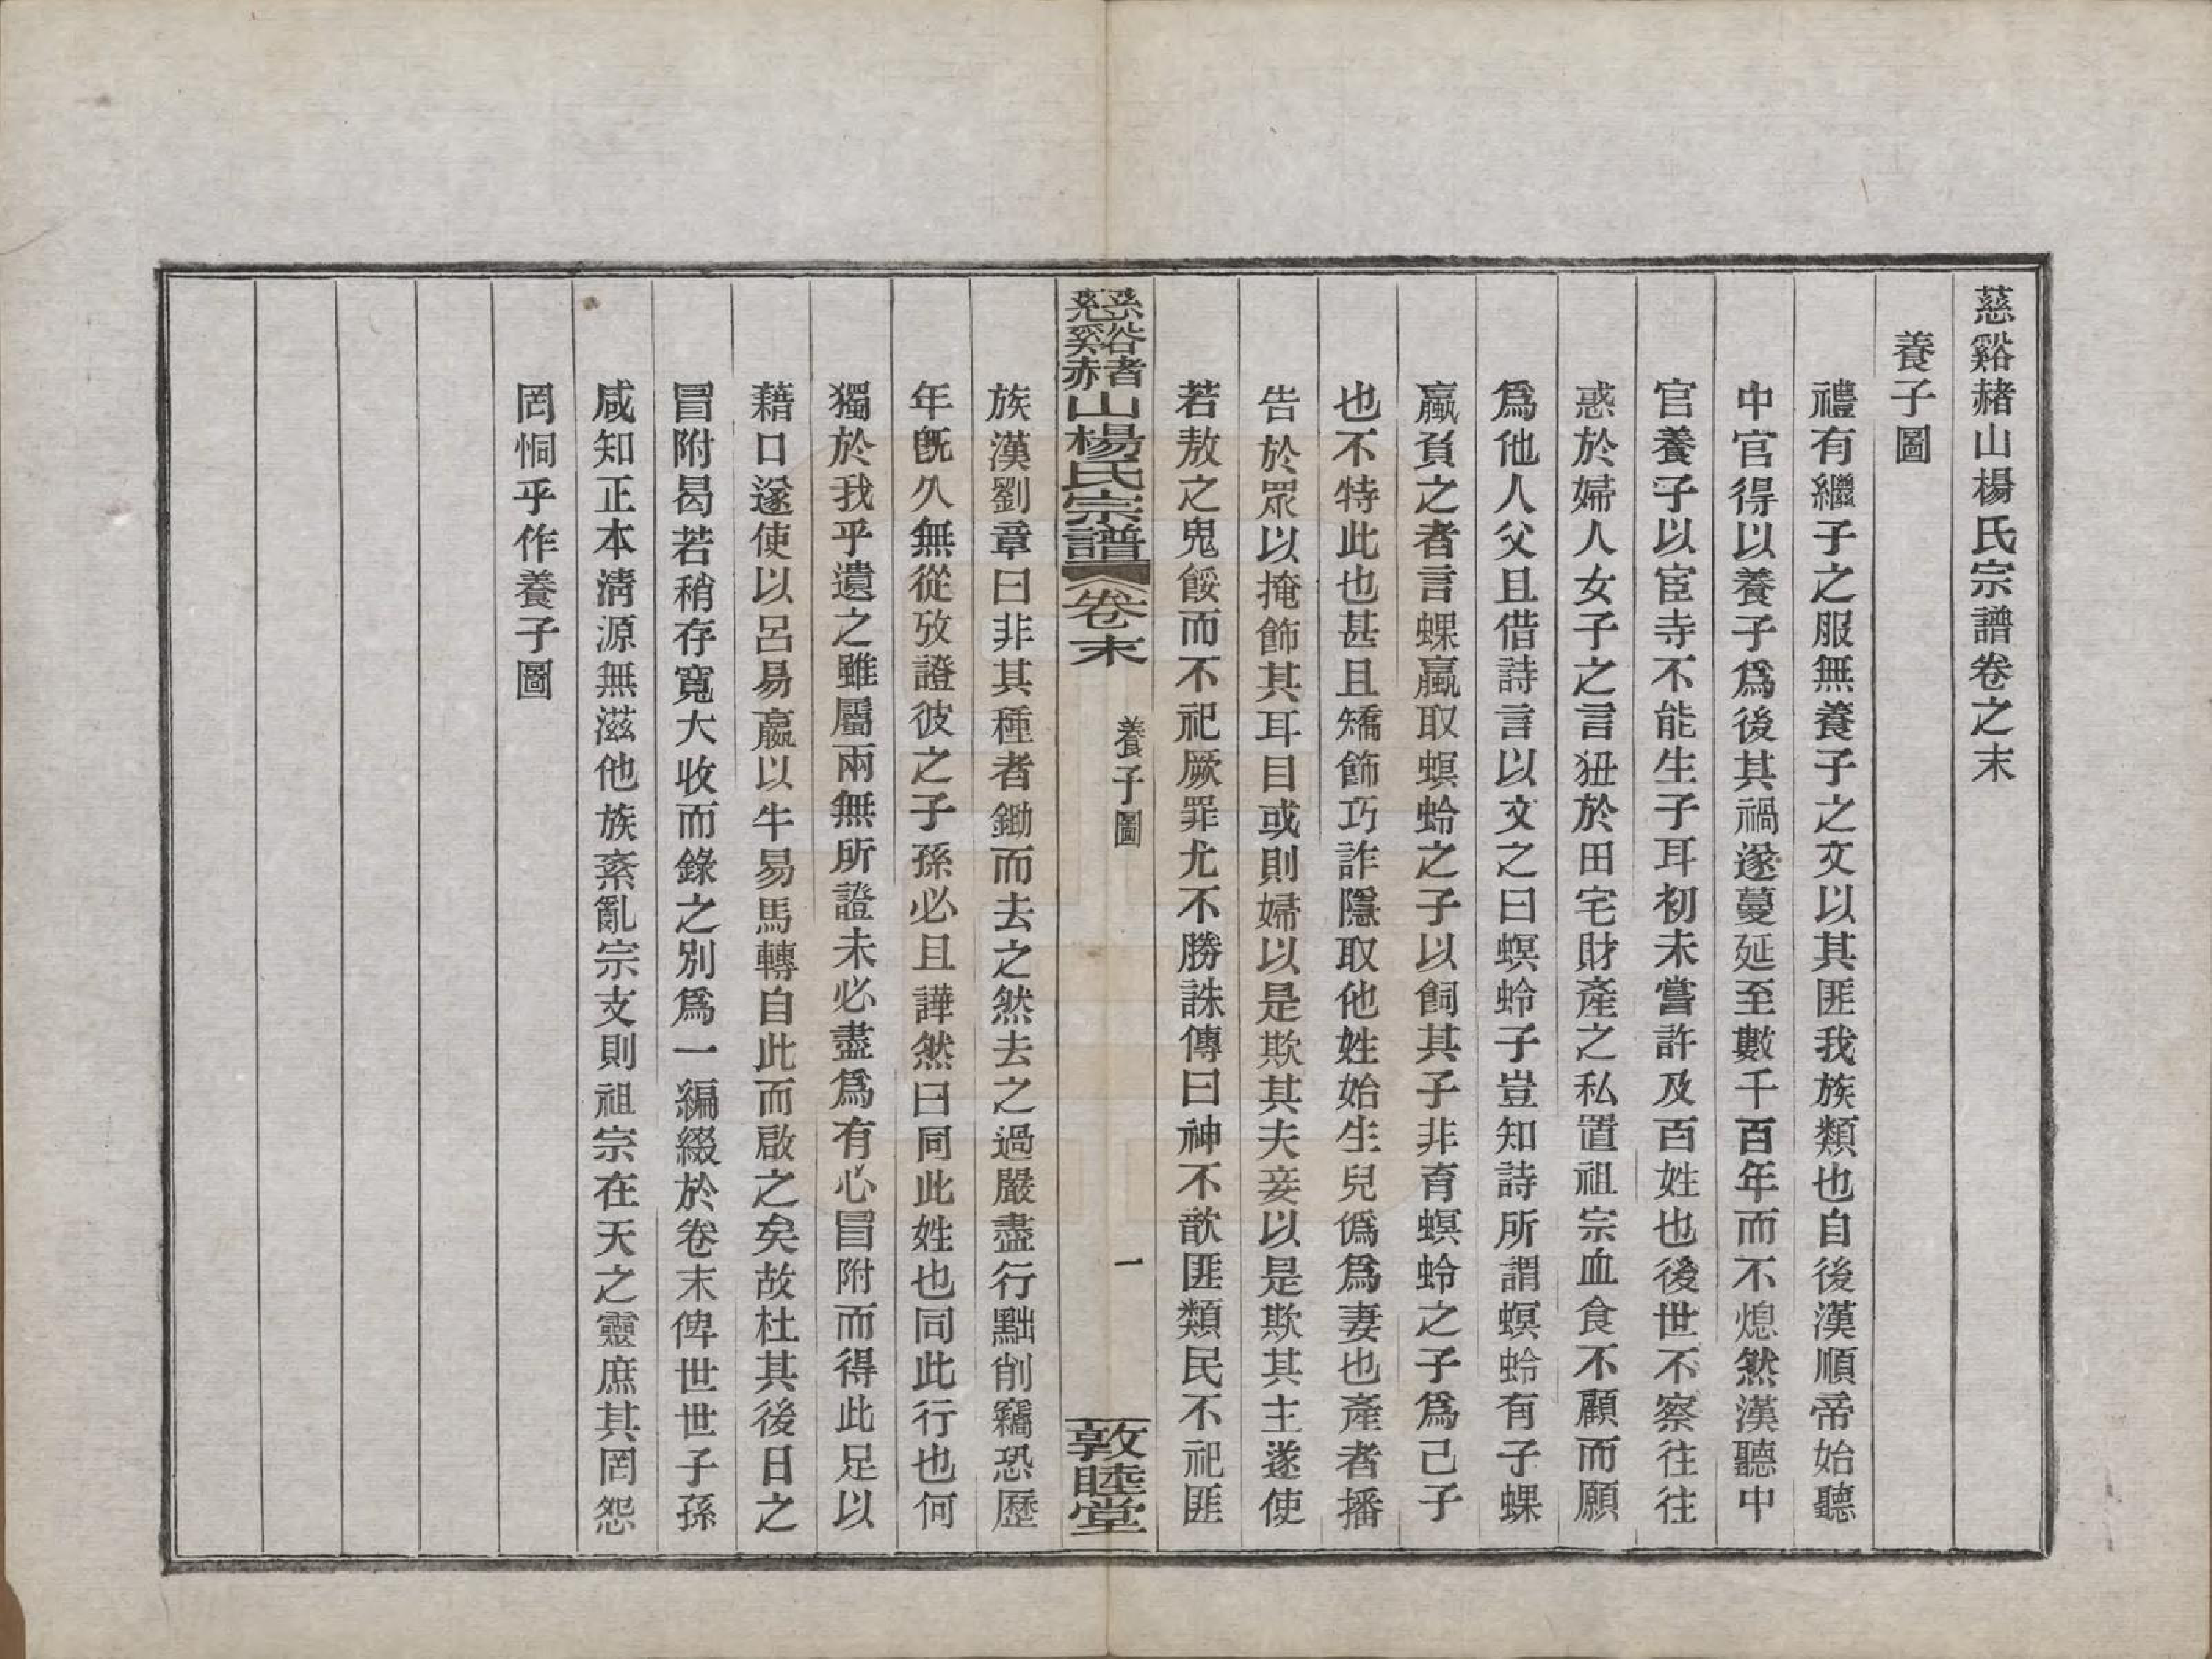 慈谿赭山楊氏宗譜卷之末
養子圖
禮有繼子之服無養子之文以其匪我族類也自後漢順帝始聽
中官得以養子爲後其禍遂蔓延至數千百年而不熄然漢聽中
官養子以宦寺不能生子耳初未嘗許及百姓也後世不察往往
惑於婦人女子之言狃於田宅財產之私置祖宗血食不顧而願
爲他人父且借詩言以文之曰螟蛉子豈知詩所謂螟蛉有子蜾
蠃負之者言蜾蠃取螟蛉之子以飼其子非育螟蛉之子爲己子
也不特此也甚且矯飾巧詐隱取他姓始生兒僞爲妻也產者播
告於眾以掩飾其耳目或則婦以是欺其夫妾以是欺其主遂使
若敖之鬼餒而不祀厥罪尤不勝誅傳曰神不歆匪類民不祀匪
慈谿赭山楊氏宗譜 卷末 養子圖 一 敦睦堂
族漢劉章曰非其種者鋤而去之然去之過嚴盡行黜削竊恐歷
年旣久無從攷證彼之子孫必且譁然曰同此姓也同此行也何
獨於我乎遺之雖屬兩無所證未必盡爲有心冒附而得此足以
藉口遂使以呂易嬴以牛易馬轉自此而啟之矣故杜其後日之
冒附曷若稍存寬大收而錄之別爲一編綴於卷末俾世世子孫
咸知正本清源無滋他族紊亂宗支則祖宗在天之靈庶其罔怨
罔恫乎作養子圖